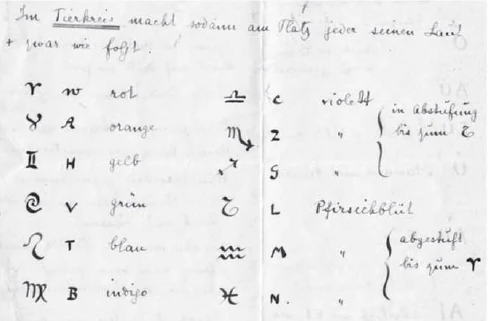 Im Tierkreis macht sodann am Platz jeder seinen Laut
+ zwar wie folgt.
♈ W rot ♎ C violett in Abstufung
♉ A orange ♏ Z " bis zum ♑
♊ H gelb ♐ G "
♋ V grün ♑ L Pfirsichblüt
♌ T blau ♒ M " abgestuft
♍ B indigo ♓ N. " bis zum ♈